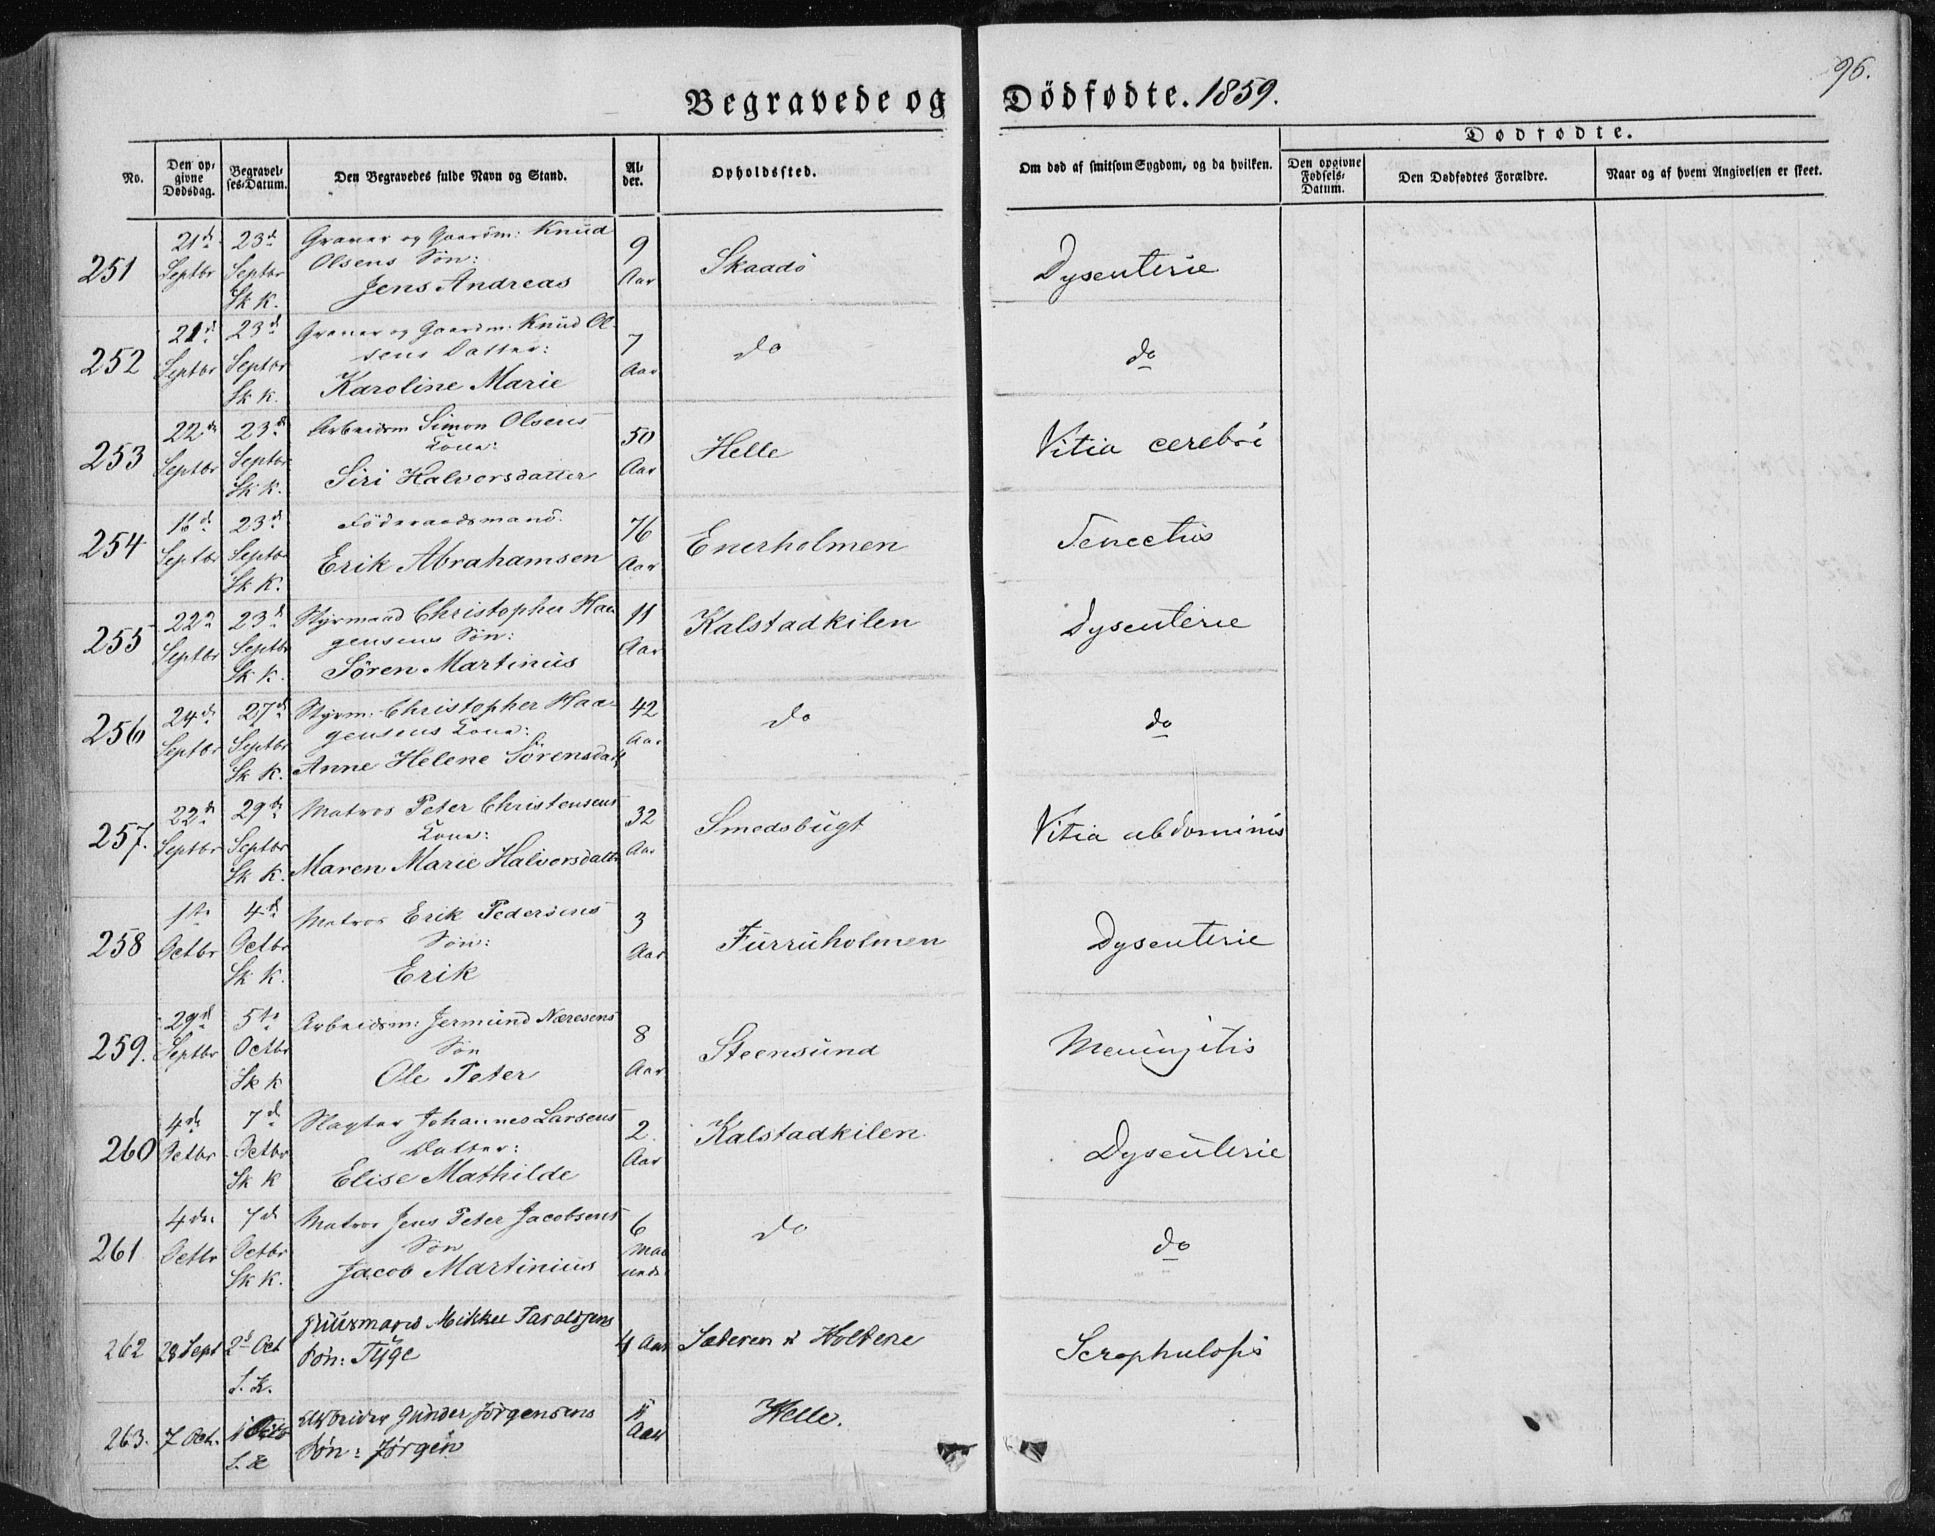 96.
Begravede og Dödfødte. 1859.
No.
Den opgivne Dødsdag.
Begravelses-Datum.
Den Begravedes fulde Navn og Stand.
Alder.
Opholdssted.
Om død af smitsom Sygdom, og da hvilken.
Dødfødte.
Den opgivne Fødsels-Datum.
Den Dødfødtes Forældre.
Naar og af hvem Angivelsen er skeet.
251 21d Septbr 23d Septbr Sk K. Graver og Gaardm: Knud Olsens Søn: Jens Andreas 9 Aar Skaadø Dysenterie
252 21d Septbr 23d Septbr Sk K. Graver og Gaardm: Knud Olsens Datter: Karoline Marie 7 Aar do do
253 22d Septbr 23d Septbr Sk K. Arbeidsm Simon Olsens Kone: Siri Halvorsdatter 50 Aar Helle Vitia cerebri
254 16d Septbr 23d Septbr Sk K. Föderaadsmand. Erik Abrahamsen 76 Aar Enerholmen Senectus
255 22d Septbr 23d Septbr Sk K. Styrmand Christopher Haagensens Søn: Sören Martinius 11 Aar Kalstadkilen Dysenterie
256 24d Septbr 27d Septbr Sk K. Styrm: Christopher Haagensens Kone: Anne Helene Sörensdatt 42 Aar do do
257. 22d Septbr 29d Septbr Sk K. Matros Peter Christensens Kone: Maren Marie Halvorsdatter 32 Aar Smedsbugt Vitia abdominis
258 1ste Octbr 4d Octbr Sk K. Matros Erik Pedersens Søn: Erik 3 Aar Furruholmen Dysenterie
259. 29d Septbr 5te Octbr Sk K Arbeidsm: Jermund Næresens Søn Ole Peter 8 Aar Steensund Meningitis
260 4de Octbr 7d Octbr Sk K Slagter Johannes Larsens Datter: Elise Mathilde 2 Aar Kalstadkilen Dysenterie
261 4de Octbr 7d Octbr Sk K. Matros Jens Peter Jacobsens Søn Jacob Martinius 6 Maaneder do do
262 28 Sept 2d Oct S. K. Huusmands Mikkel Taraldsens Søn: Tyge 4 Aar Holtene Scrophulosis
263. 7 Oct. Arbeider Gunder Jørgensens Søn: Jørgen Aar Helle.